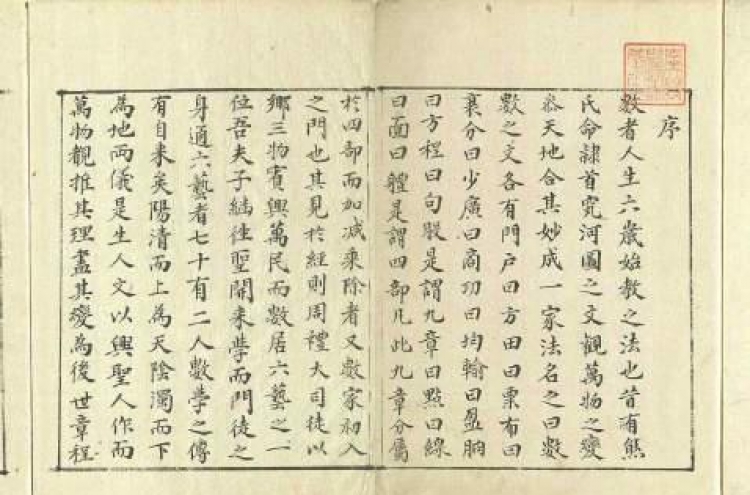 序
數者人生六歲始教之法也昔有熊
氏命隷首究河圖之文觀萬物之變
叅天地合其妙成一家法名之曰數
數之文各有門戶曰方田曰粟布曰
襄分曰少廣曰商功曰均輸曰盈朒
曰方程曰句股是謂九章曰點曰線
曰面曰體是謂四部凡此九章分屬
於四部而加减乘除者又數家初入
之門也其見於經則周禮大司徒以
鄉三物賓興萬民而數居六藝之一
位吾夫子継徃聖開来學而門徒之
身通六藝者七十有二人數學之傳
有自来矣陽清而上為天陰濁而下
為地両儀是生人文以興聖人作而
萬物觀推其理盡其變為後世章程